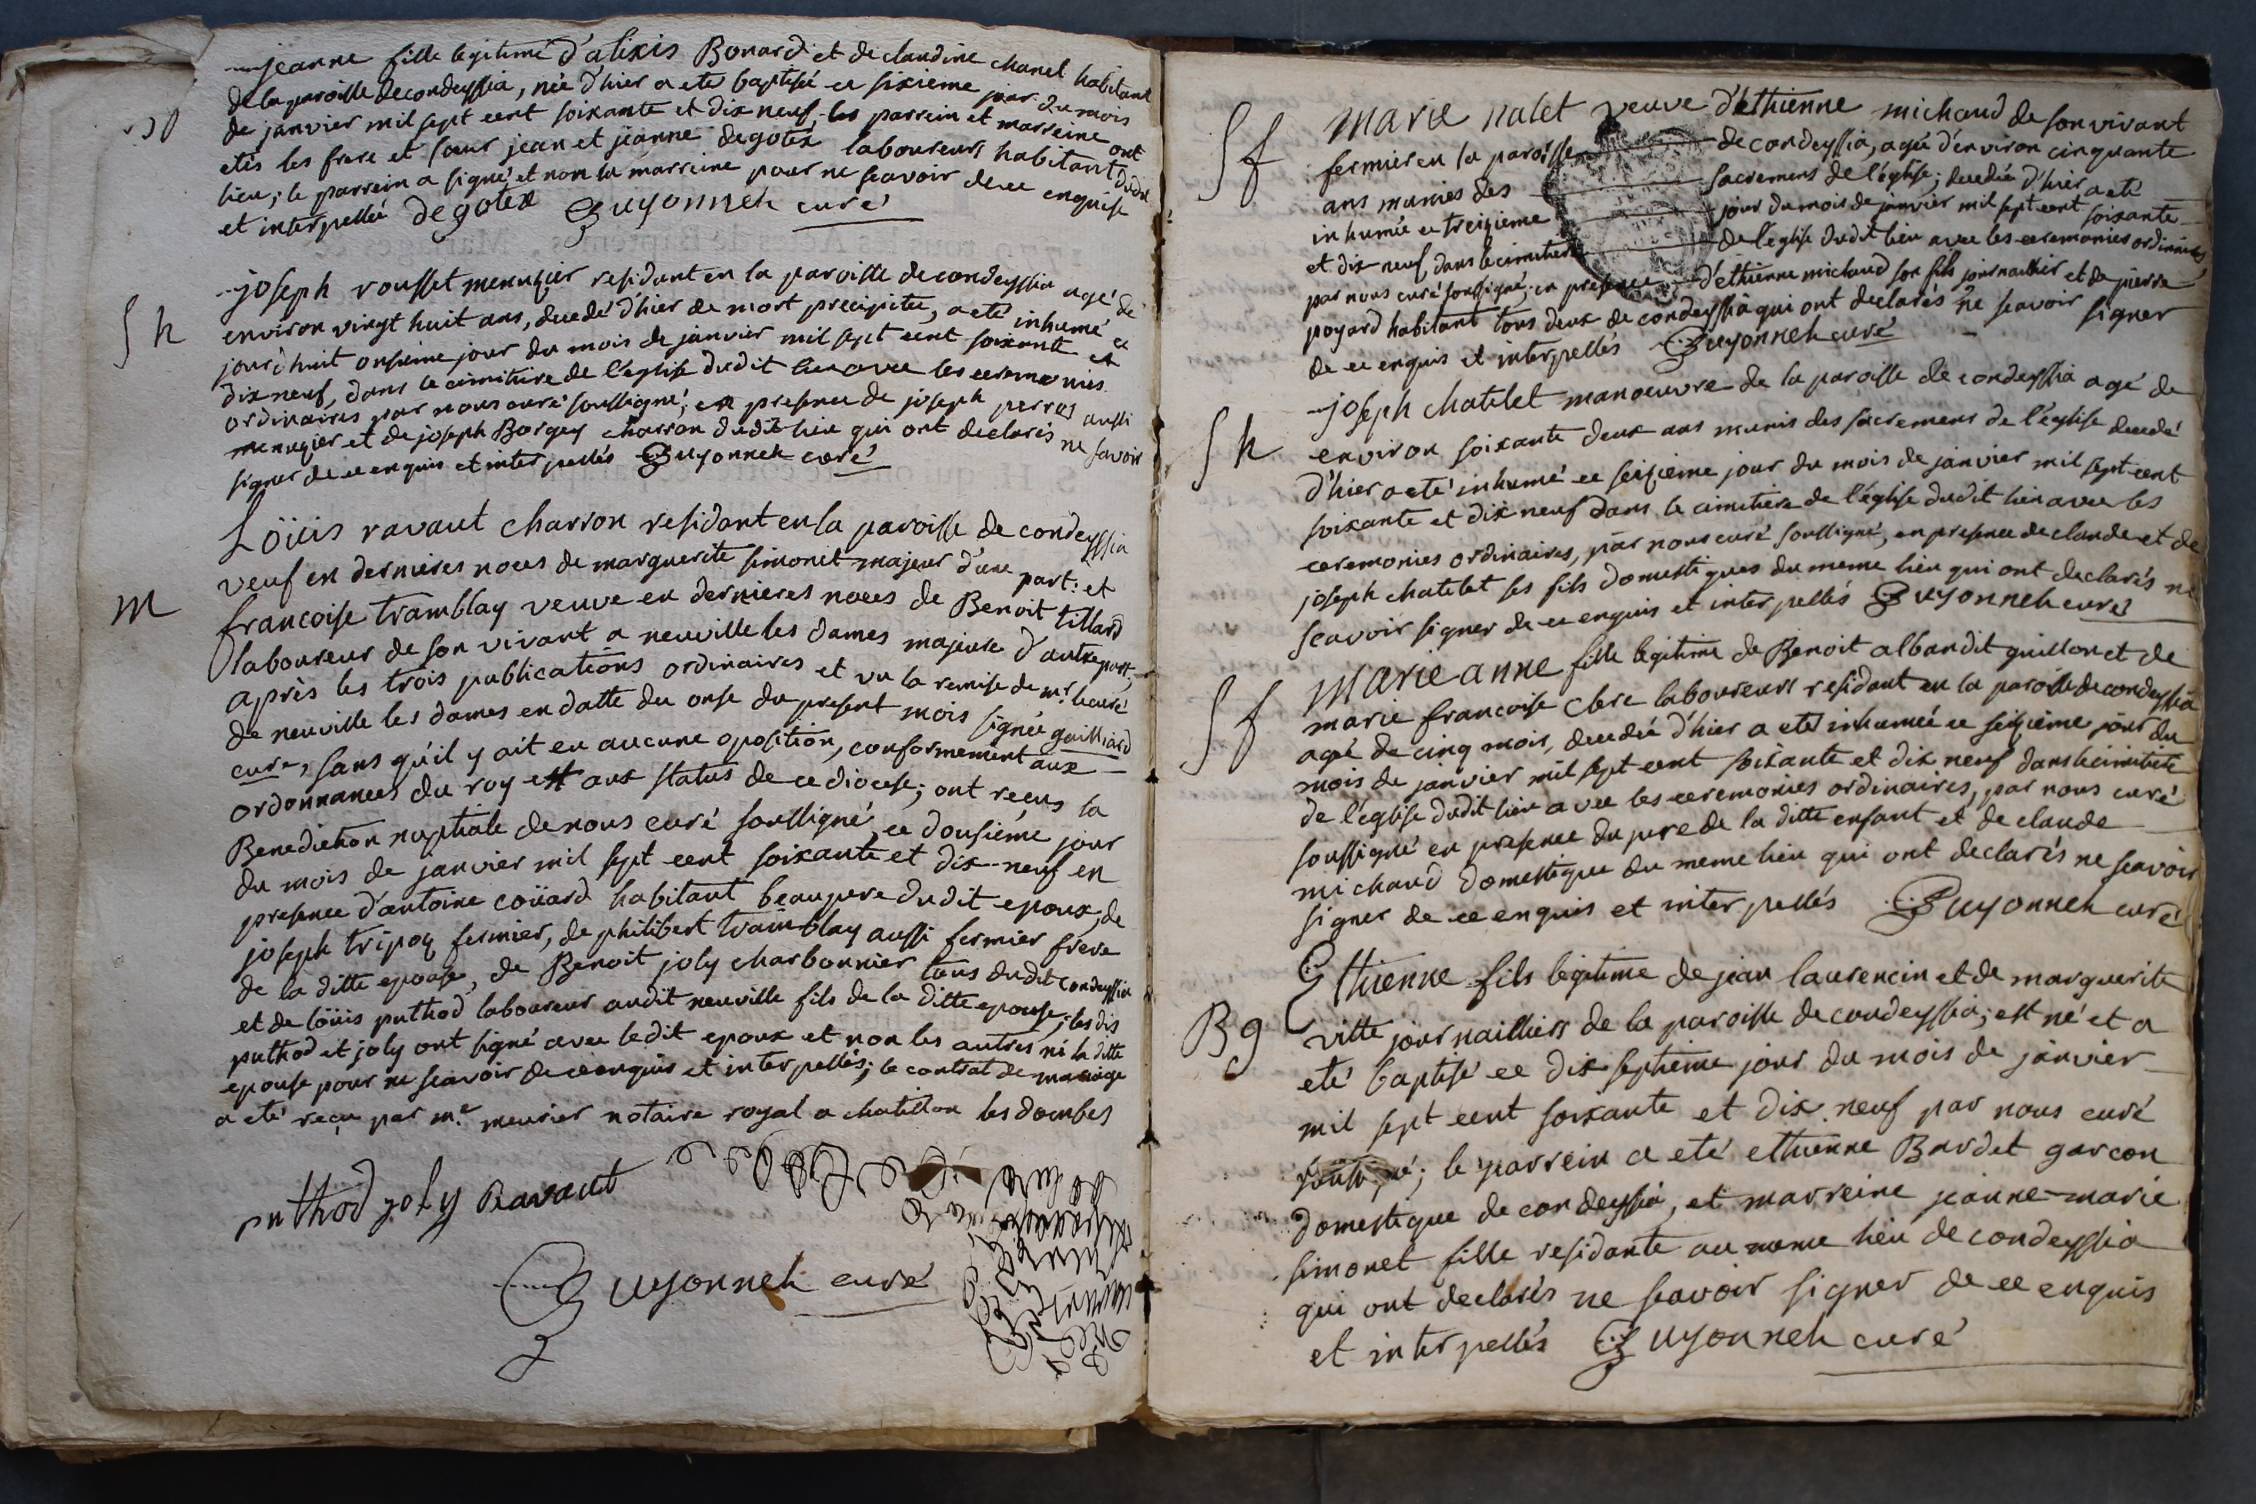 jeanne fille legitime d'alixis Bonard et de claudine chanel habitant
de la paroisse de condeyssia, née d'hier a ete baptisée ce sixieme jour du mois
de janvier mil sept cent soixante et dix neuf, les parrein et marreine ont
etés les frere et sœur jean et jeanne degotex laboureurs habitant dudit
lieu; le parrein a signé et non la marreine pour ne scavoir de ce enquise
et interpellée degotex Guyonneh curé
joseph rousset menuzier residant en la paroisse de condeyssia agé de
S h
environ vingt huit ans, decedé d'hier de mort precipitée, a eté inhumé ce
jourd'huit onsieme jour du mois de janvier mil sept cent soixante et
dix neuf, dans le cimitiere de l'eglise dudit lieu avec les ceremonies
ordinaires par nous curé soussigné, en presence de joseph perras aussi
menuzier et de joseph Borgey charron dudit lieu qui ont declarés ne savoir
signer de ce enquis et interpellés Guyonneh curé
Loüis ravaut charron residant en la paroisse de condeyssia
veuf en dernieres noces de marguerite simonet majeur d'une part: et
m
francoise tramblay veuve en dernieres noces de Benoit tillard
laboureur de son vivant a neuville les dames majeure d'autre part,
après les trois publications ordinaires et vu la remise de mr. le curé
de neuville les dames en datte du onse du present mois signée guilliard
cure, sans qu'il y ait eu aucune oposition, conformement aux
ordonnances du roy et aux status de ce diocese; ont reçus la
Benediction nuptiale de nous curé soussigné, ce dousiéme jour
du mois de janvier mil sept cent soixante et dix-neuf en
presence d'antoine coüard habitant beaupere dudit epoux, de
joseph tripoz fermier, de philibert tramblay aussi fermier frere
de la ditte epouse, de Benoit joly charbonnier tous dudit condeyssia
et de loüis puthod laboureur audit neuville fils de la ditte epouse; les dis
puthod et joly ont signé avec ledit epoux et non les autres ni la ditte
epouse pour ne scavoir de ce enquis et interpellés; le contrat de mariage
a eté reçu par me. meurier notaire royal a chatillon les dombes
puthod joly Ravaut
Guyonneh curé
marie nalet veuve d'ethienne michaud de son vivant
S f
fermier en la paroisse de condeyssia, agée d'environ cinquante
ans munies des sacremens de l'église; decedée d'hier a eté
inhumée ce treizieme jour du mois de janvier mil sept cent soixante
et dix neuf, dans le cimitiere de l'eglise dudit lieu avec les ceremonies ordinaires,
par nous curé soussigné; en presence d'ethienne michaud son fils journaillier et de pierre
poyard habitant tous deux de condeyssia qui ont declarés ne scavoir signer
de ce enquis et interpellés Guyonneh curé
joseph chatelet manoeuvre de la paroisse de condeyssia agé de
S h
environ soixante deux ans munis des sacremens de l'église decedé
d'hier a eté inhumé ce seizieme jour du mois de janvier mil sept cent
soixante et dix neuf dans le cimitiere de l'église dudit lieu avec les
ceremonies ordinaires, par nous curé soussigné, en presence de claude et de
joseph chatelet ses fils domestiques du meme lieu qui ont declarés ne
scavoir signer de ce enquis et interpellés Guyonneh curé
marie anne fille legitime de Benoit alban dit guillon et de
S f
marie francoise clerc laboureurs residant en la paroisse de condeyssia
agé de cinq mois, decedée d'hier a eté inhumeé ce seizième jour du
mois de janvier mil sept cent soixante et dix neuf dans le cimitiere
de l'église dudit lieu avec les ceremonies ordinaires, par nous curé
soussigné en presence du pere de la ditte enfant et de claude
michaud domestique du meme lieu qui ont declarés ne scavoir
signer de ce enquis et interpellés Guyonneh curé
Ethienne fils legitime de jean laurencin et de marguerite
B g
vitte journailliers de la paroisse de condeyssia; est né et a
eté baptisé ce dix septieme jour du mois de janvier
mil sept cent soixante et dix neuf par nous curé
soussigné; le parrein a eté ethienne Bardet garcon
domestique de condeyssia, et marreine jeanne-marie
simonet fille residante au meme lieu de condeyssia
qui ont declarés ne scavoir signer de ce enquis
et interpellés Guyonneh curé